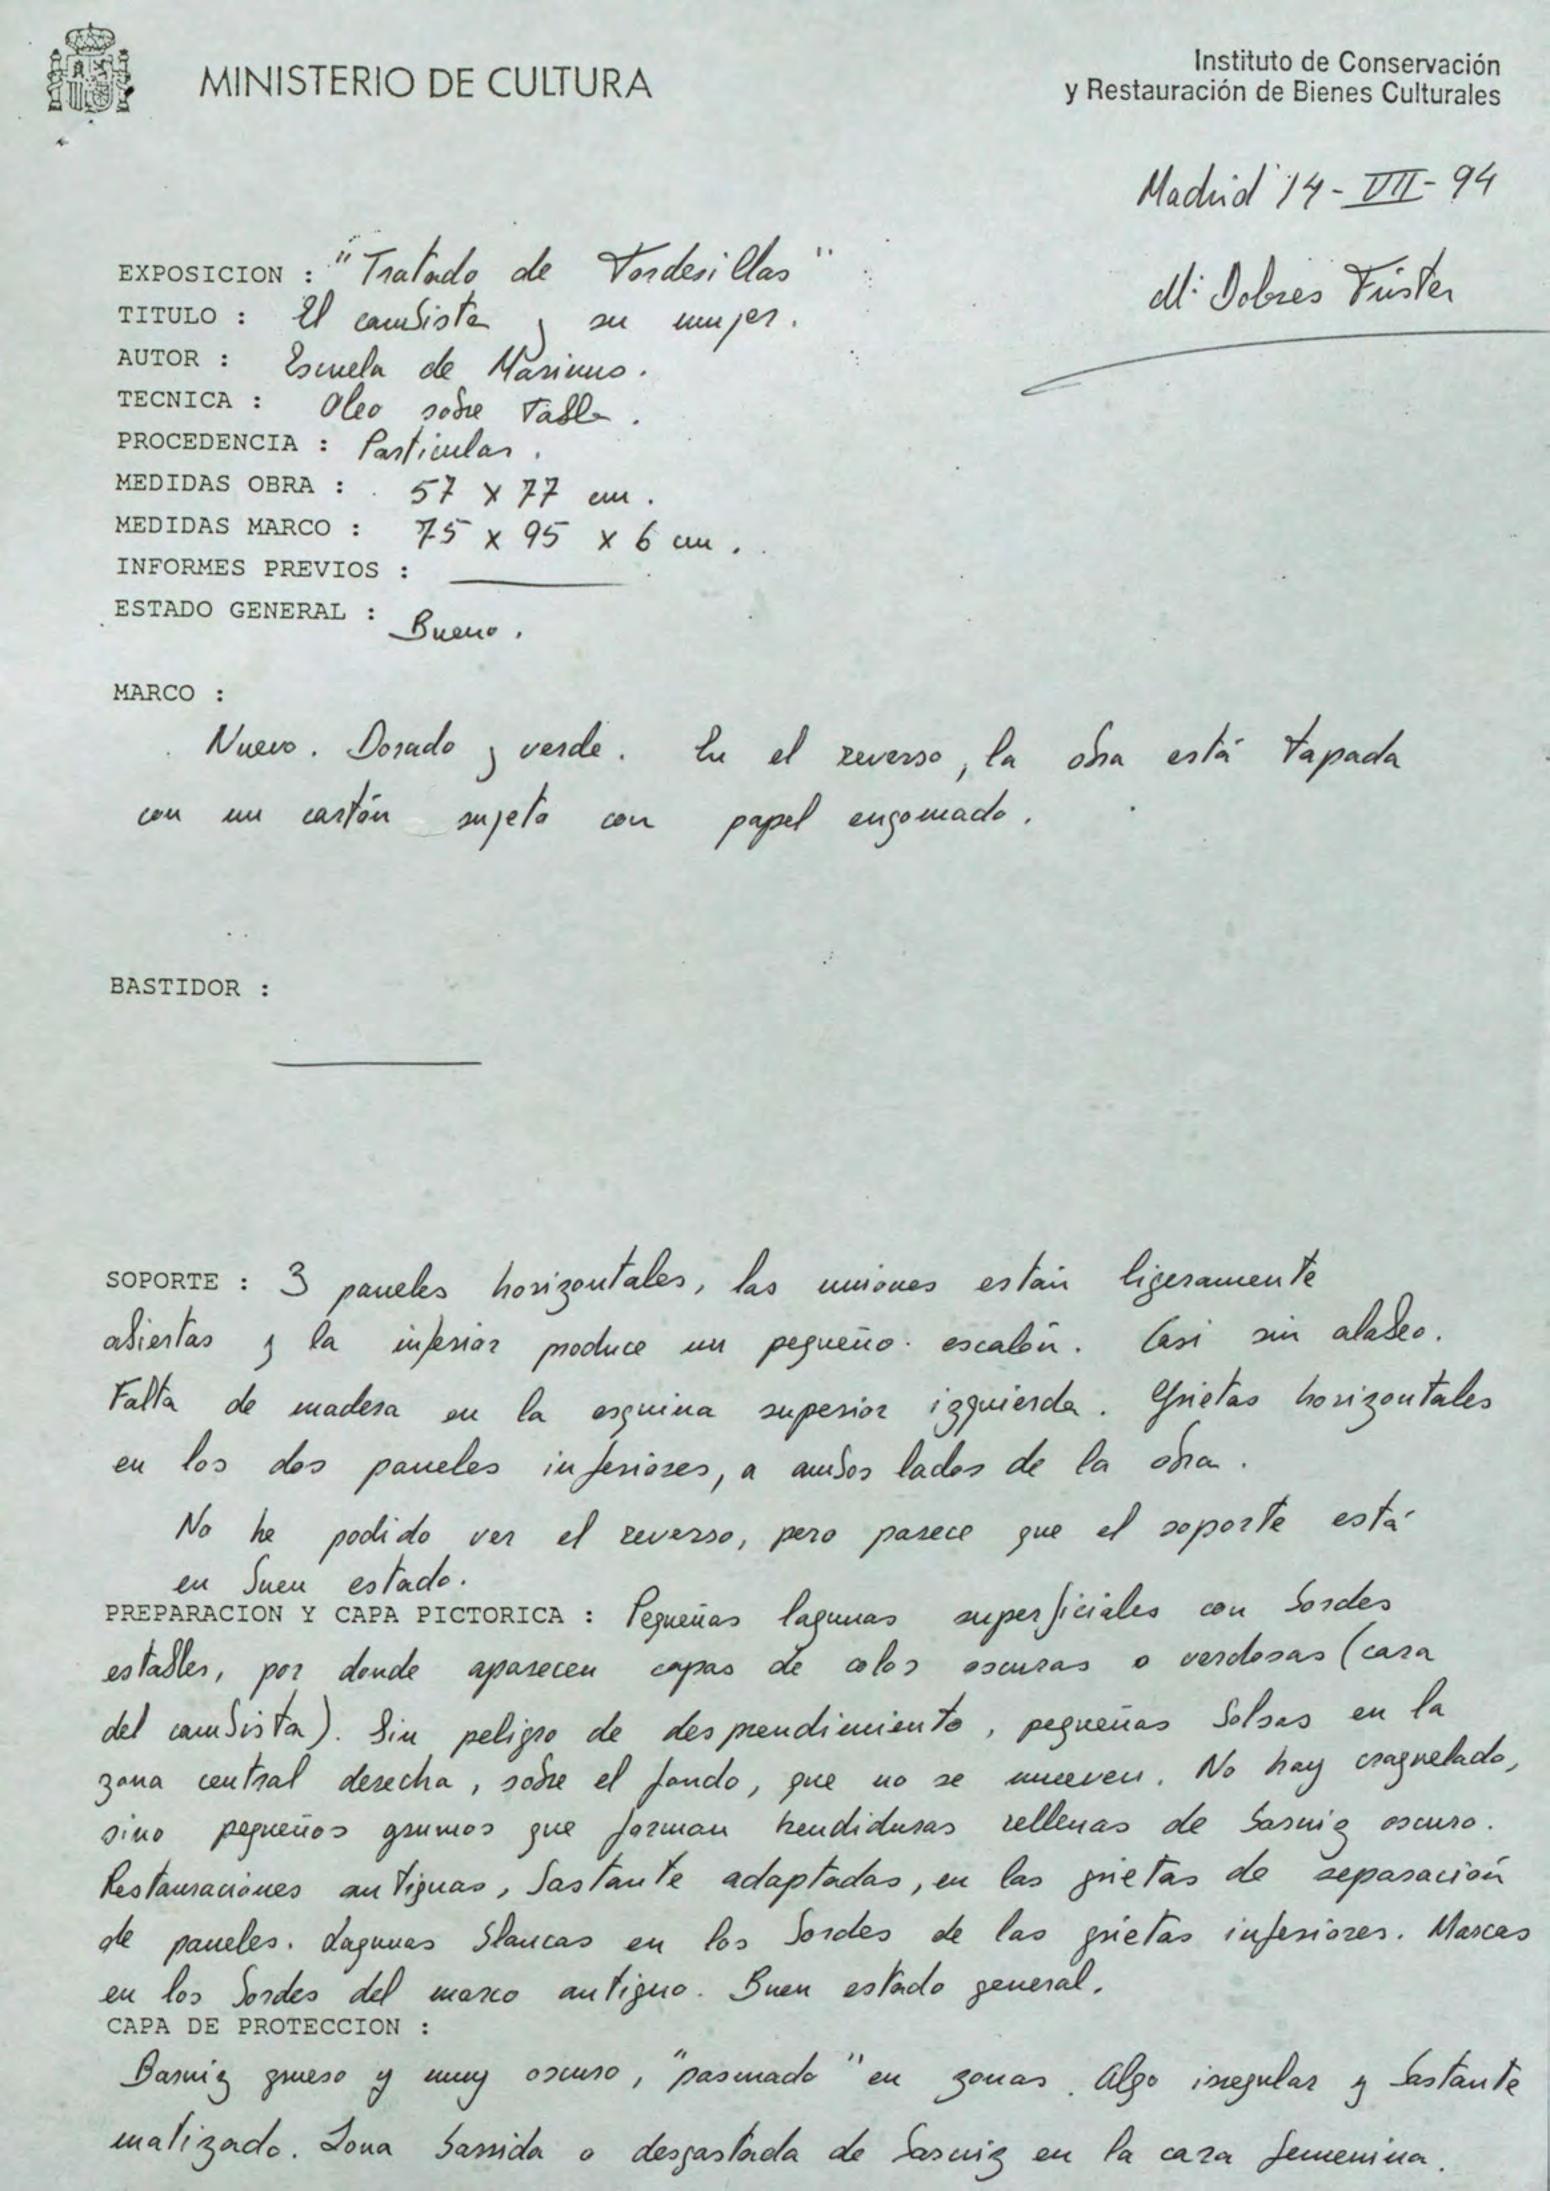 MINISTERIO DE CULTURA
Instituto de Conservación
y Restauración de Bienes Culturales
Madrid 14-VII-94
Mª Dolores Fúster
EXPOSICION : "Tratado de Tordesillas"
TITULO : El cambista y su mujer.
AUTOR : Escuela de Marinus.
TECNICA : Oleo sobre Tabla.
PROCEDENCIA : Particular.
MEDIDAS OBRA : 57 x 77 cm.
MEDIDAS MARCO : 75 x 95 x 6 cm.
INFORMES PREVIOS :
ESTADO GENERAL : Bueno.
MARCO :
Nuevo. Dorado y verde. En el reverso, la obra está tapada
con un cartón sujeto con papel engomado.
BASTIDOR :
SOPORTE : 3 paneles horizontales, las uniones están ligeramente
abiertas y la inferior produce un pequeño escalón. Casi sin alabeo.
Falta de madera en la esquina superior izquierda. Grietas horizontales
en los dos paneles inferiores, a ambos lados de la obra.
No he podido ver el reverso, pero parece que el soporte está
en buen estado.
PREPARACION Y CAPA PICTORICA : Pequeñas lagunas superficiales con bordes
estables, por donde aparecen capas de color oscuras o verdosas (cara
del cambista). Sin peligro de desprendimiento, pequeñas bolsas en la
zona central derecha, sobre el fondo, que no se mueven. No hay craquelado,
sino pequeños grumos que forman hendiduras rellenas de barniz oscuro.
Restauraciones antiguas, bastante adaptadas, en las grietas de separación
de paneles. Lagunas blancas en los bordes de las grietas inferiores. Marcas
en los bordes del marco antiguo. Buen estado general.
CAPA DE PROTECCION :
Barniz grueso y muy oscuro, "pasmado" en zonas. Algo irregular y bastante
matizado. Zona barrida o desgastada de barniz en la cara femenina.